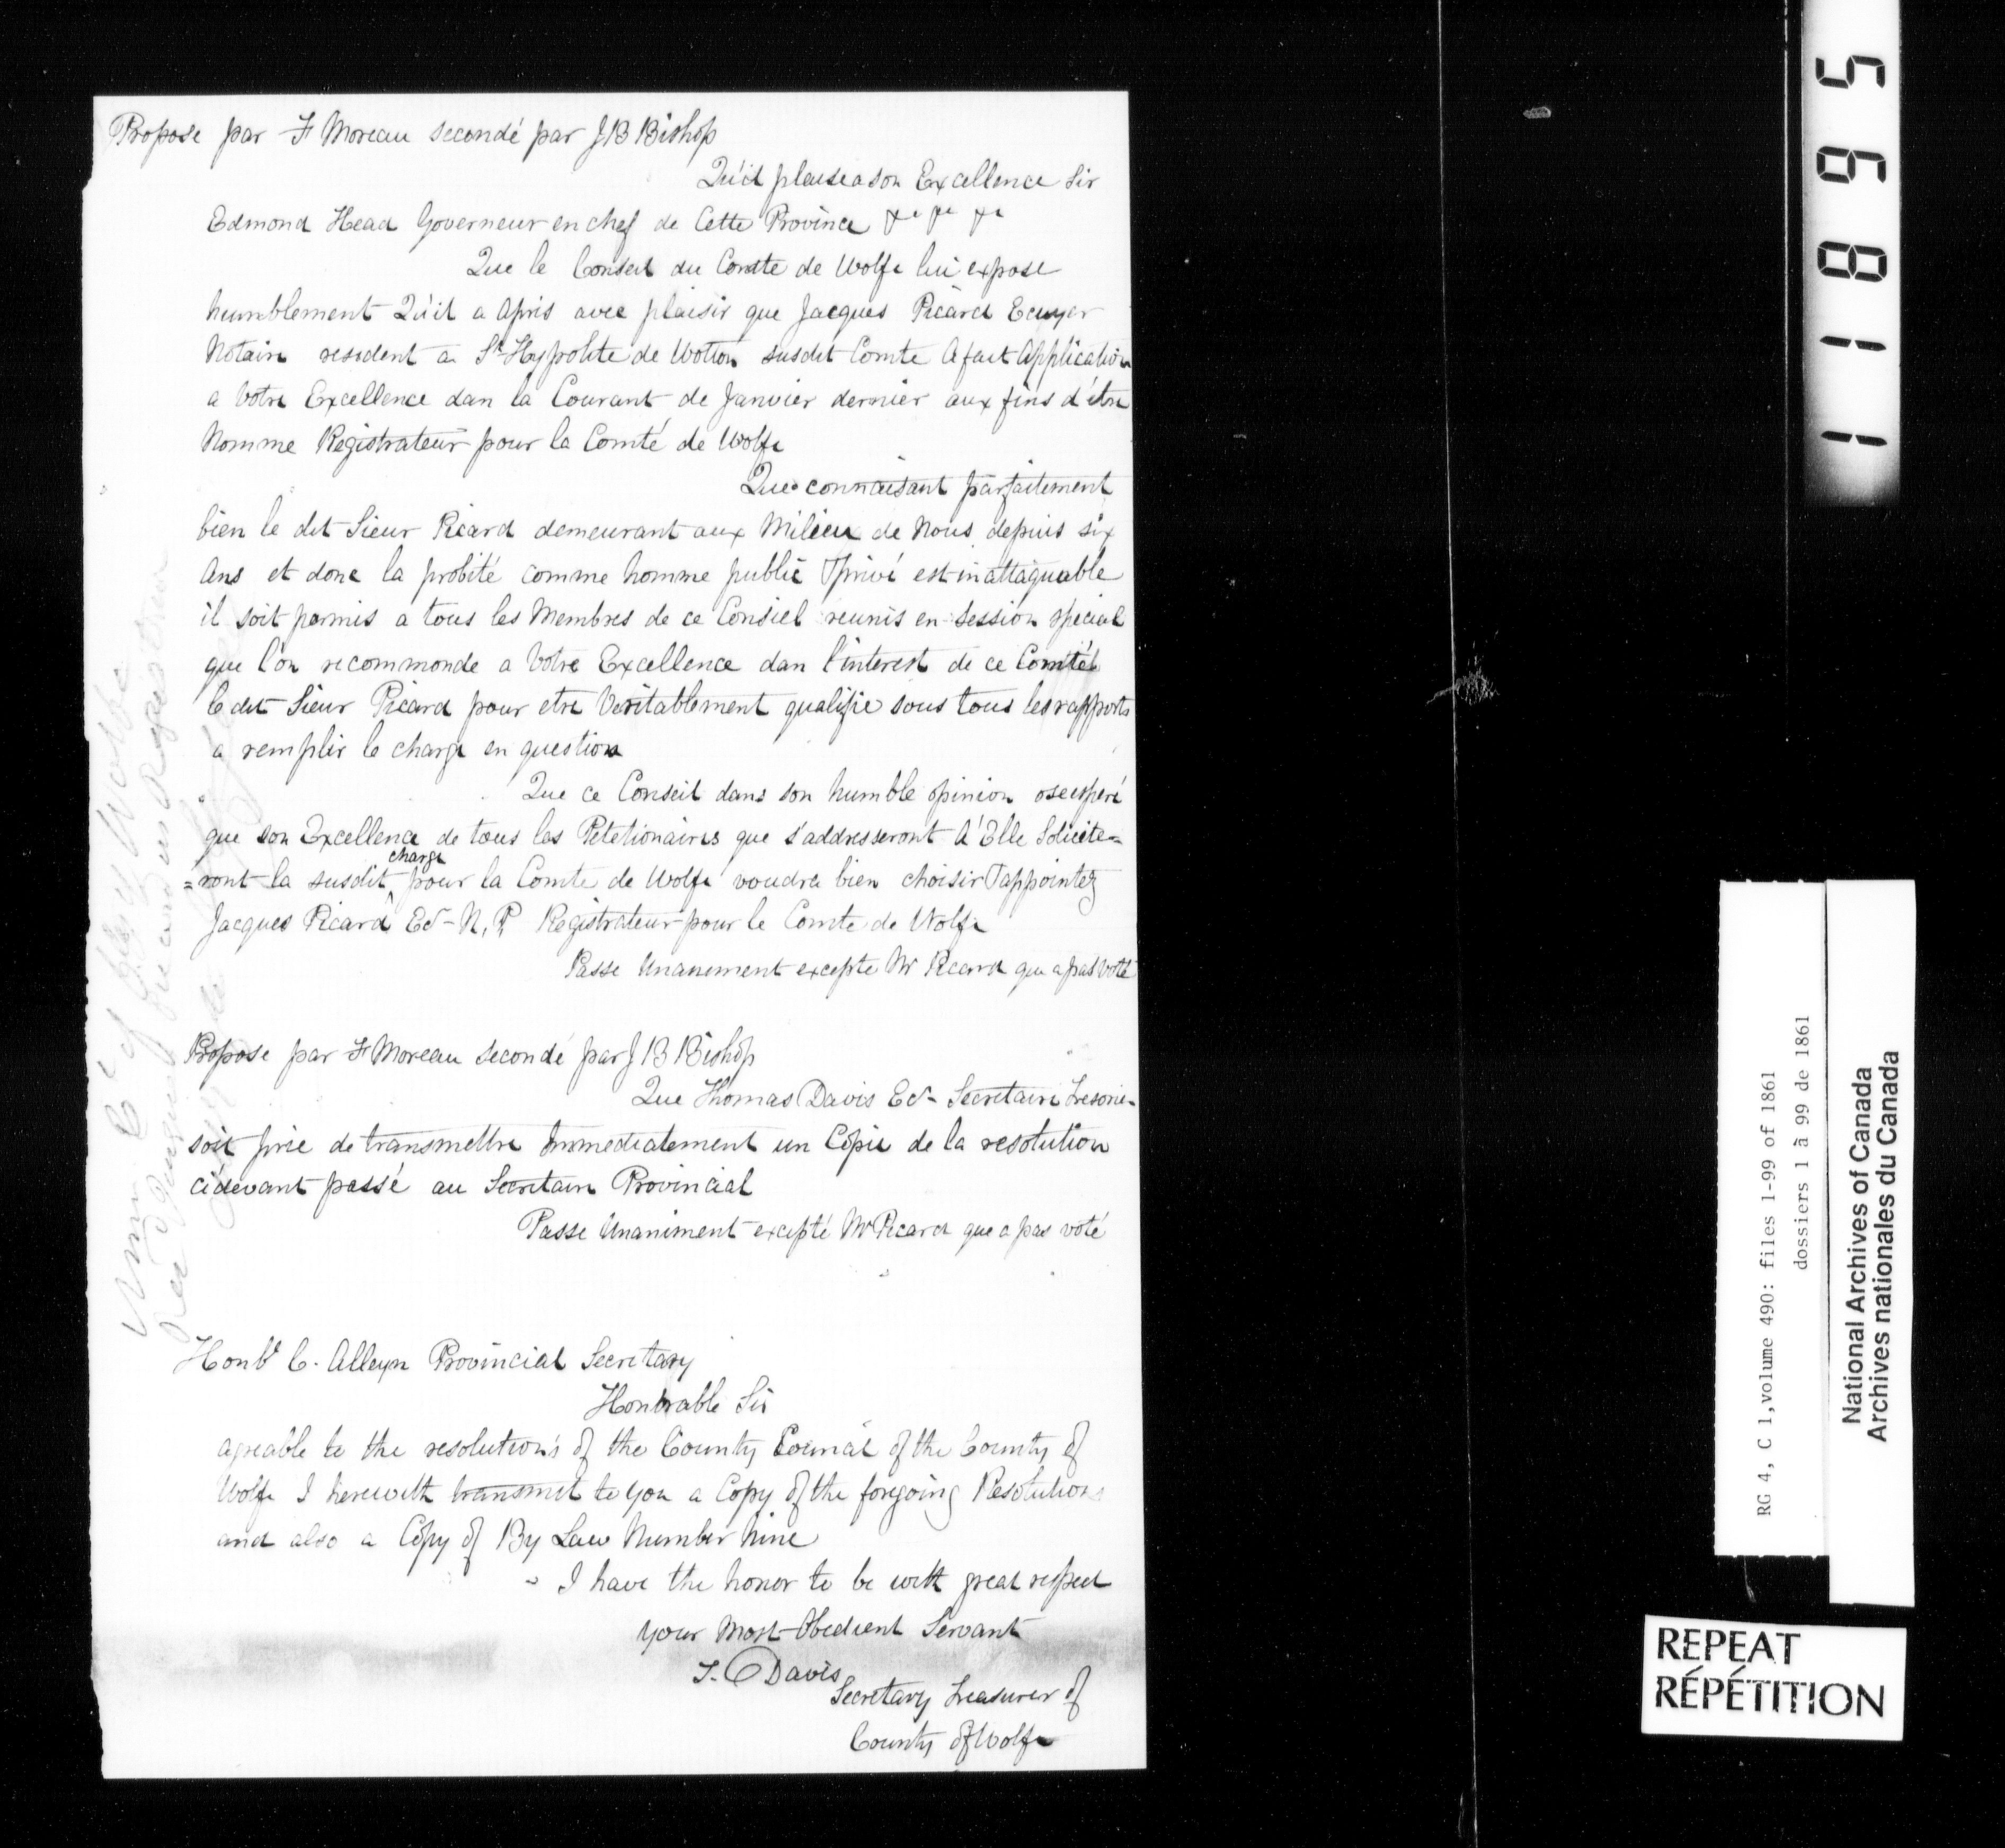 Propose par F Moreau secondé par J B Bishop
Qu'il plaise a son Excellence Sir
Edmond Head Governeur en chef de Cette Province &c &c &c
Que le Conseil du Comte de Wolfe lui expose
humblement Qu'il a apris avec plaisir que Jacques Picard Ecuyer
Notaire resident a St Hypolite de Wotton susdit Comte a fait Application
a Votre Excellence dan la Courant de Janvier dernier aux fins d'être
Nomme Registrateur pour la Comté de Wolfe
Que connaisant parfaitement
bien le dit Sieur Picard demeurant aux Milieu de Nous depuis six
Ans et done la probité comme homme public & privé est inattaquable
il soit permis a tous les Membres de ce Consiel reunis en session special
que l'on recommonde a Votre Excellence dan l'interest de ce Comté
le dit Sieur Picard pour etre Veritablement qualifie sous tous les rapports
a remplir le charge en question
Que ce Conseil dans son humble opinion ose esperé
que son Excellence de tous les Petetionaires que s'addresseront A'Elle Solicite=
=ront la susdit charge pour la Comte de Wolfe voudra bien choisir & appointez
Jacques Picard Ecr N.P. Registrateur pour le Comte de Wolfe
Passe Unaniment excepte Mr Picard que a pas voté
Propose par F Moreau secondé par J B Bishop
Que Thomas Davis Ecr Secretaire Tresorie-
soit prie de transmettre Immediatement un Copie de la resolution
cidevant passé au Secretaire Provincial
Passe Unaniment excepté Mr Picard que a pas voté
Honble C. Alleyn Provincial Secretary
Honorable Sir
agreable to the resolution's of the County Council of the County of
Wolfe I herewith transmit to you a Copy of the foregoing Resolutions
and also a Copy of By Law Number Nine
I have the honor to be with great respect
your Most Obedient Servant
T. Davis
Secretary Treasurer of
County of Wolfe
118695
RG 4, C 1, volume 490: files 1-99 of 1861
dossiers 1 à 99 de 1861
National Archives of Canada
Archives nationales du Canada
REPEAT
RÉPÉTITION